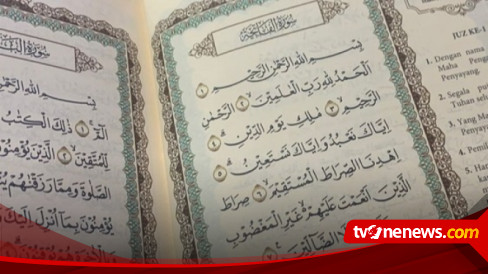 سُوْرَةُ الْفَاتِحَةِ
بِسْمِ اللهِ الرَّحْمٰنِ الرَّحِيْمِ ١
اَلْحَمْدُ لِلهِ رَبِّ الْعٰلَمِيْنَ ٢ الرَّحْمٰنِ
الرَّحِيْمِ ٣ مٰلِكِ يَوْمِ الدِّيْنِ ٤
اِيَّاكَ نَعْبُدُ وَاِيَّاكَ نَسْتَعِيْنُ ٥
اِهْدِنَا الصِّرَاطَ الْمُسْتَقِيْمَ ٦ صِرَاطَ
الَّذِيْنَ اَنْعَمْتَ عَلَيْهِمْ غَيْرِ الْمَغْضُوْبِ
الضَّآلِّيْنَ
سُوْرَةُ
بِسْمِ اللهِ
الۤمّۤ ١ ذٰلِكَ الْكِتٰبُ
لِلْمُتَّقِيْنَ ٢ الَّذِيْنَ يُؤْمِنُوْنَ
الصَّلٰوةَ وَمِمَّا رَزَقْنٰهُمْ
يُؤْمِنُوْنَ بِمَآ اُنْزِلَ اِلَيْكَ
JUZ KE-1
1. Dengan nama
Maha
Penyayang.
2. Segala
Tuhan
3. Yang
4.
5.
tvonenews.com